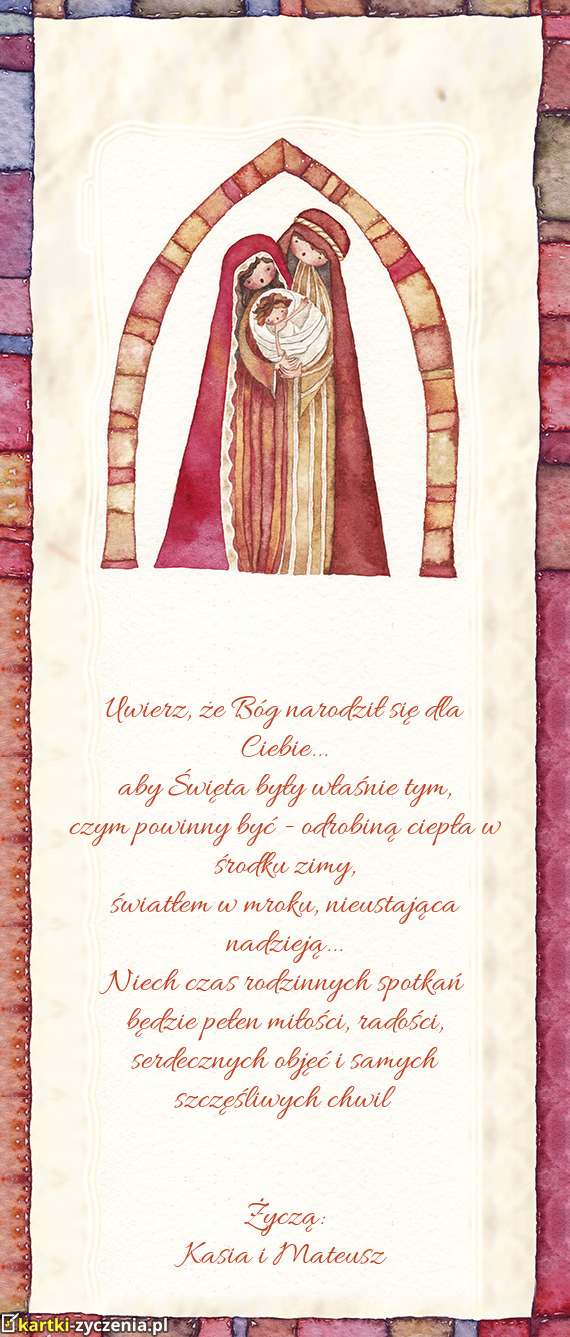 Uwierz, że Bóg narodził się dla
Ciebie...
aby Święta były właśnie tym,
czym powinny być - odrobiną ciepła w
środku zimy,
światłem w mroku, nieustająca
nadzieją...
Niech czas rodzinnych spotkań
będzie pełen miłości, radości,
serdecznych objęć i samych
szczęśliwych chwil
Życzą:
Kasia i Mateusz
kartki-zyczenia.pl